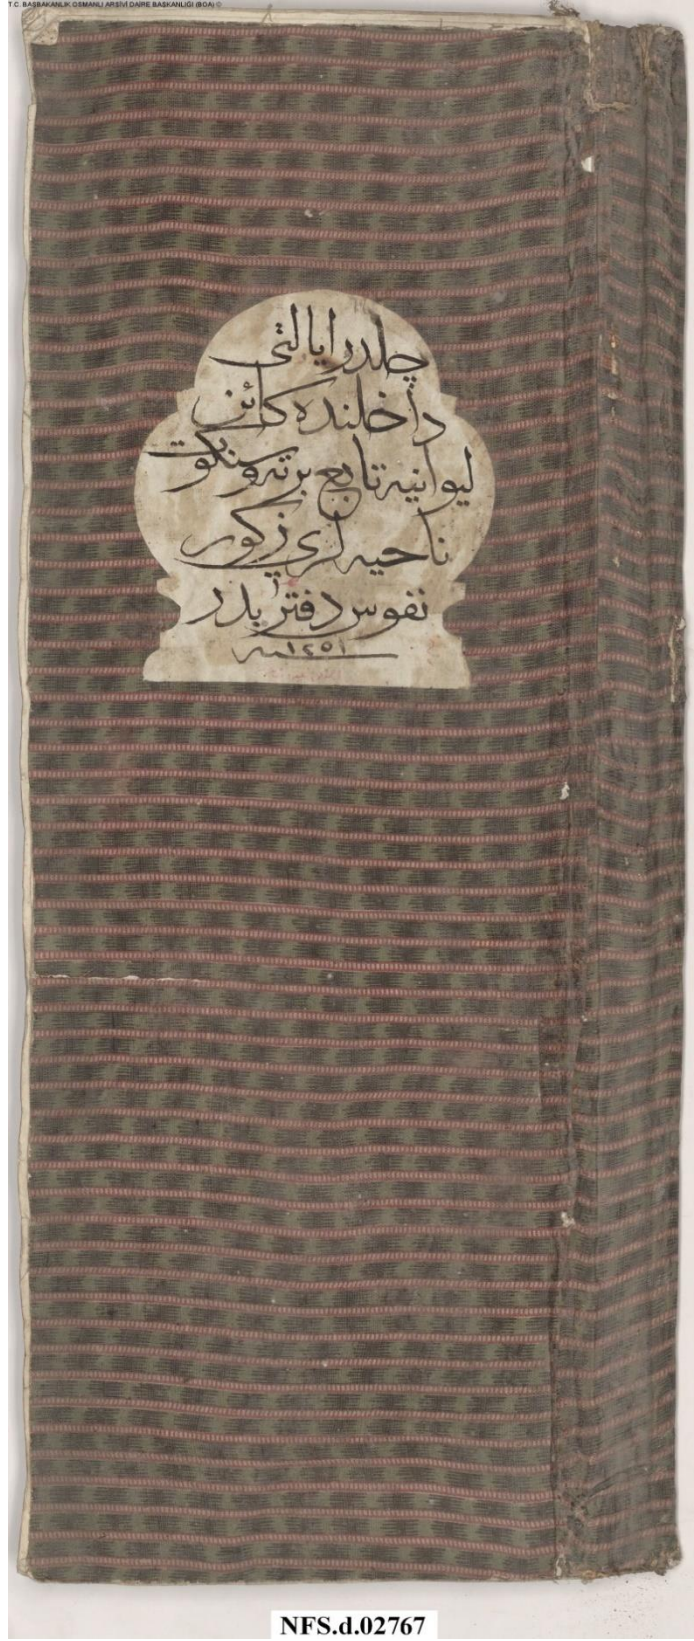 T.C. BAŞBAKANLIK OSMANLI ARŞİVİ DAİRE BAŞKANLIĞI (BOA) ©
چلدر ایالتی
داخلنده كائن
لیوانیه تابع برته و سنكوت
ناحیه لری ذكور
نفوس دفتریدر
سنه ١٢٥١
NFS.d.02767